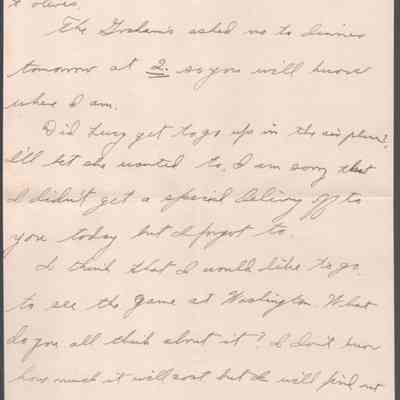 to
The Grahams asked us to dinner
tomorrow at 2. so you will know
where I am.
Did Lucy get to go up in the air plane?
I'll bet she wanted to. I am sorry that
I didn't get a special delivery off to
you today but I forgot to.
I think that I would like to go
to see the game at Washington. What
do you all think about it? I don't know
how much it will cost but I will find out